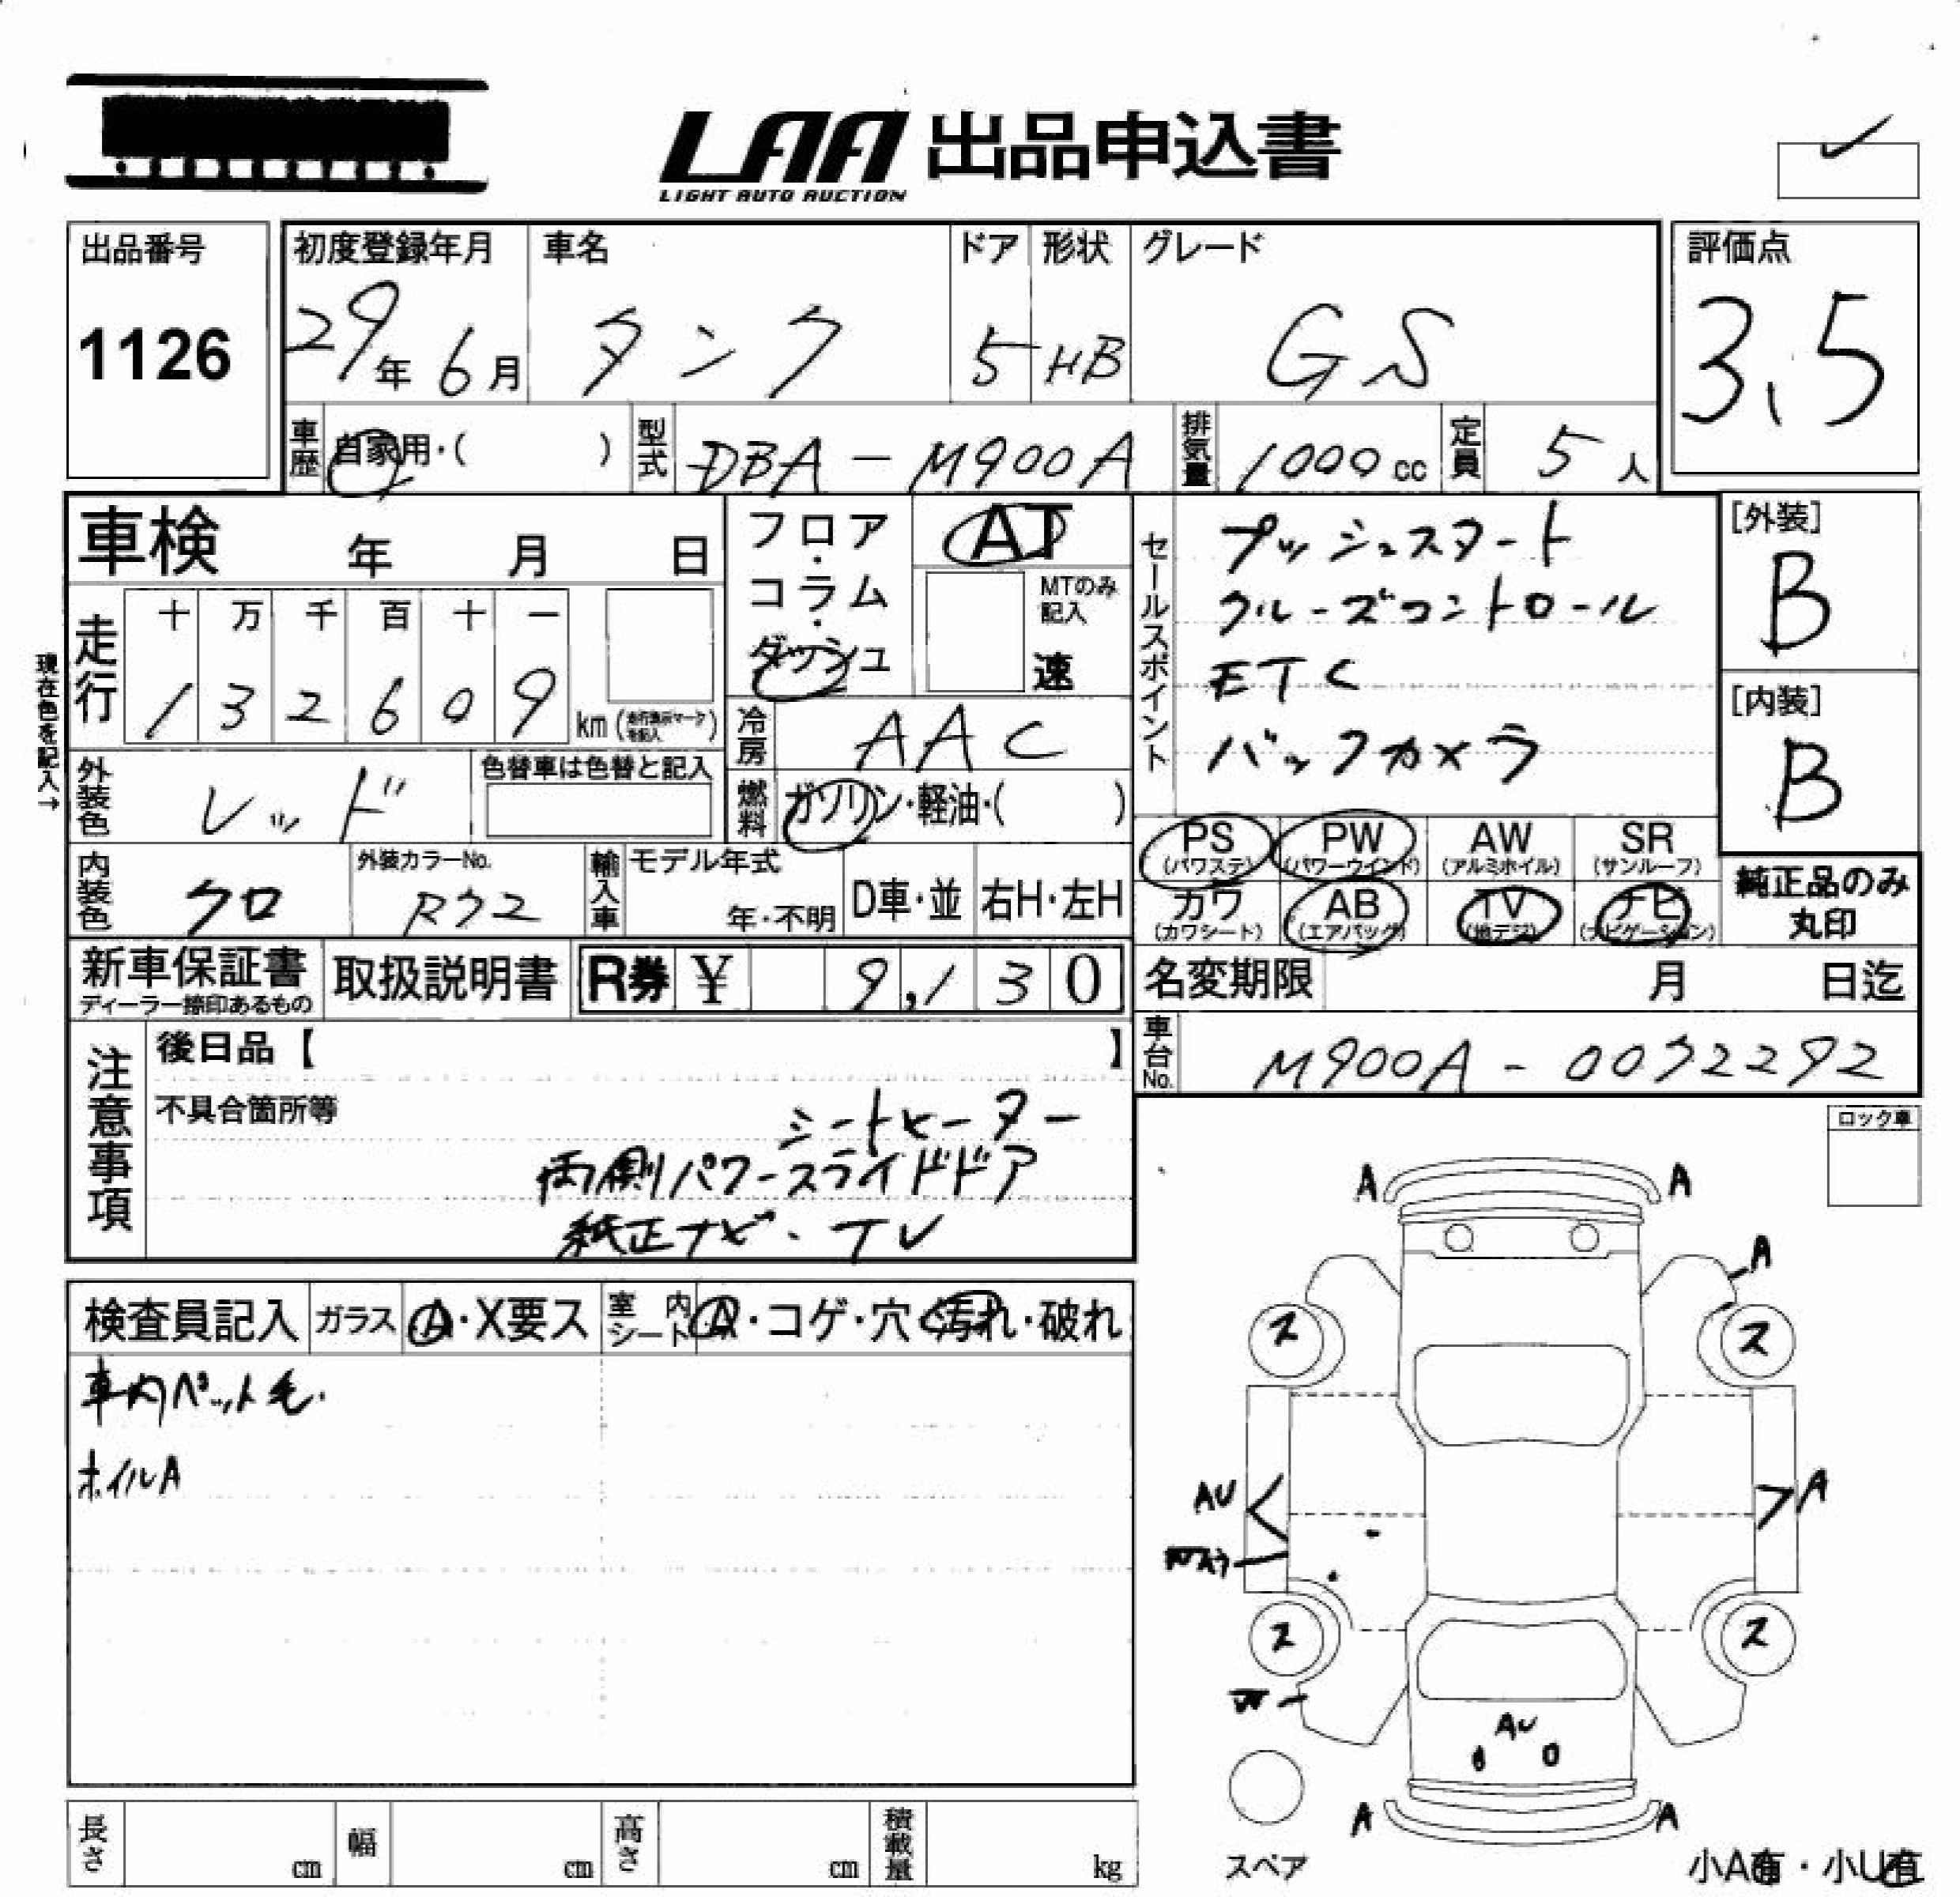 LAA 出品申込書
LIGHT AUTO AUCTION
出品番号
1126
初度登録年月
29年 6月
車名
タンク
ドア
5
形状
HB
グレード
GS
評価点
3.5
車歴
自家用・( )
型式
DBA-M900A
排気量
1000cc
定員
5人
車検 年 月 日
フロア・コラム・ダッシュ
AT
MTのみ記入
速
セールスポイント
プッシュスタート
クルーズコントロール
ETC
バックカメラ
[外装]
B
[内装]
B
現在色を記入→
走行
十 万 千 百 十 一
1 3 2 6 0 9
km
冷房
AAC
外装色
レッド
色替車は色替と記入
燃料
ガソリン・軽油・( )
PS (パワステ)
PW (パワーウインド)
AW (アルミホイル)
SR (サンルーフ)
カワ (カワシート)
AB (エアバッグ)
TV (地デジ)
ナビ (ナビゲーション)
純正品のみ
丸印
内装色
クロ
外装カラーNo.
輸入車
モデル年式
年・不明
D車・並
右H・左H
新車保証書
ディーラー捺印あるもの
取扱説明書
R券 ¥ 9,130
名変期限 月 日迄
車台No.
注意事項
後日品【 】
不具合箇所等
シートヒーター
両側パワースライドドア
純正ナビ・TV
ロック車
検査員記入
ガラス
A・X要ス
室内シート
A・コゲ・穴・汚れ・破れ
車内ペット毛.
ホイルA
A
A
A
ス
ス
AU
A
ス
ス
AU
A
A
スペア
小A有・小U有
長さ cm
幅 cm
高さ cm
積載量 kg